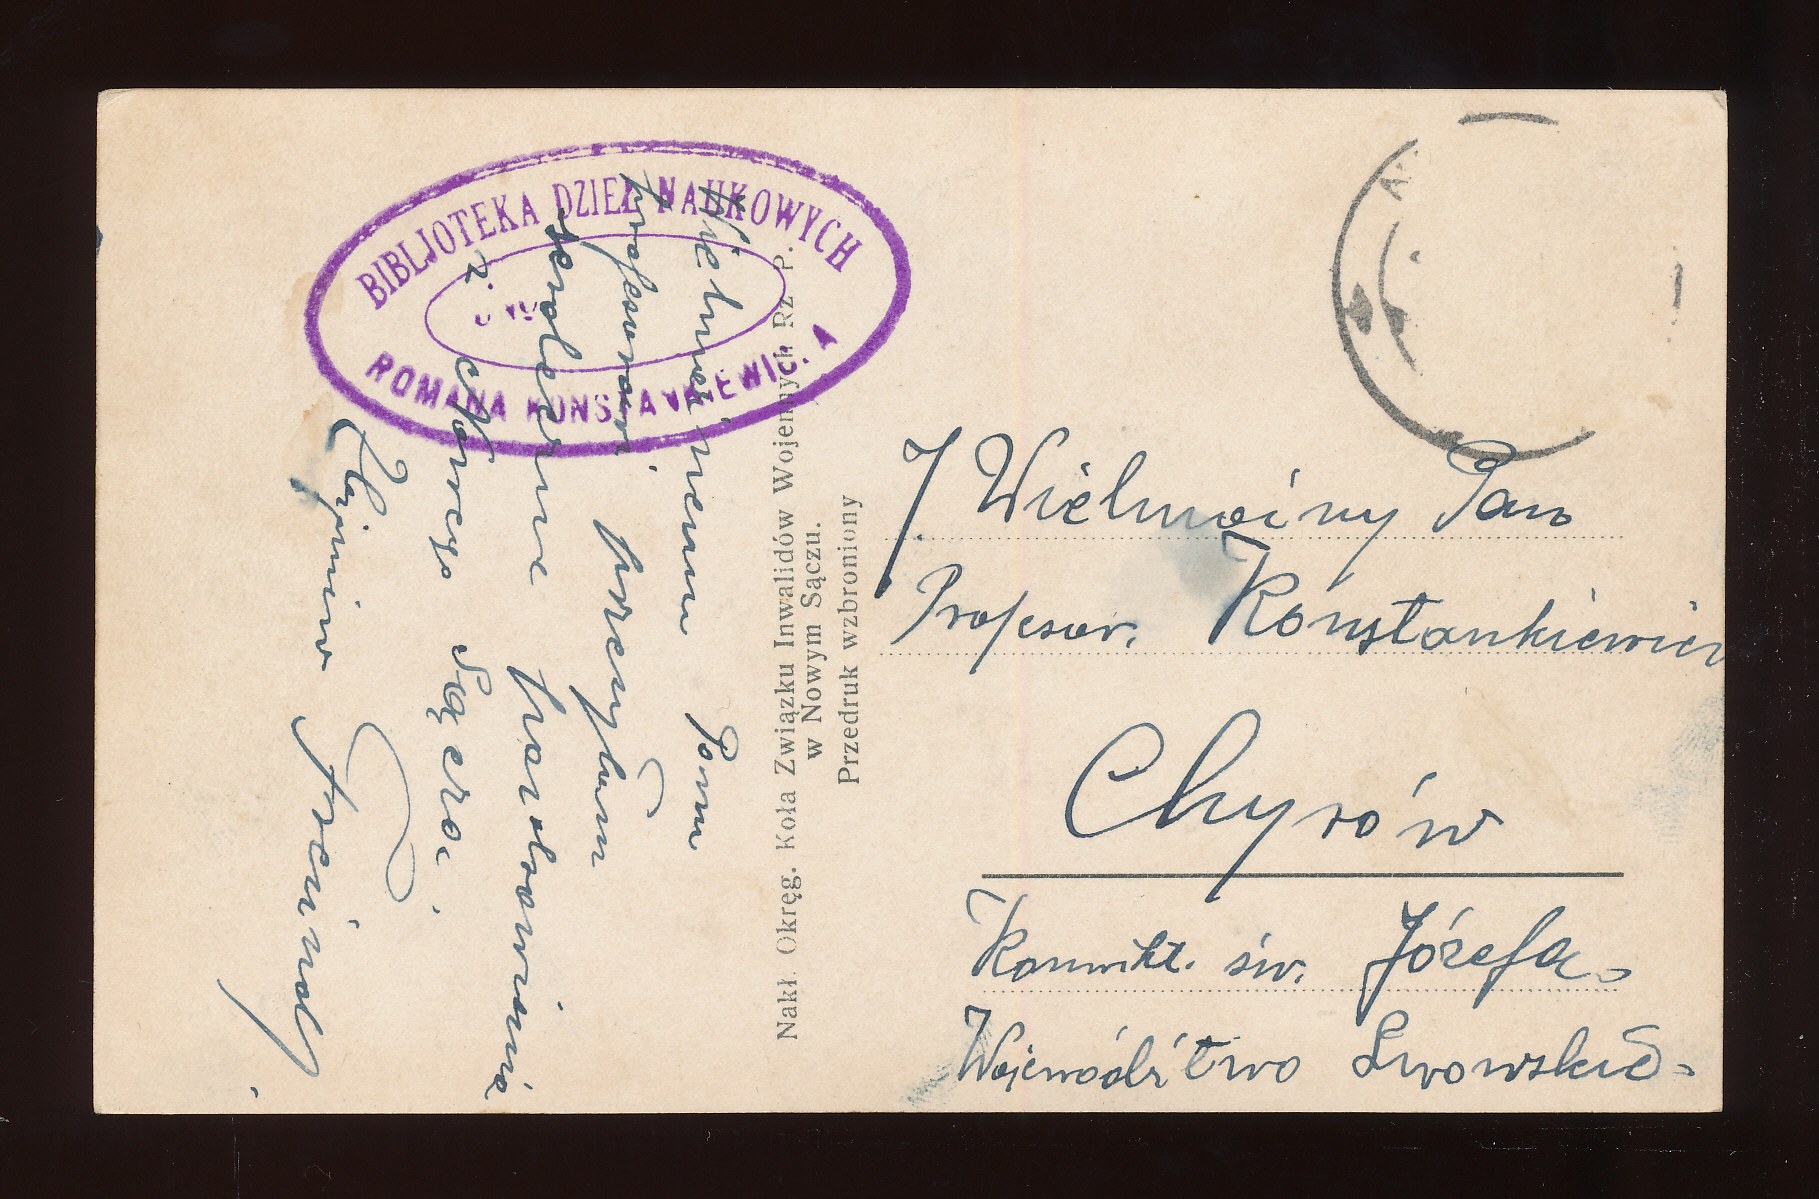 BIBLJOTEKA DZIEŁ NAUKOWYCH
ROMANA KONSTANKIEWICZA
Wielmożnemu Panu
Profesorowi przesyłam
serdeczne pozdrowienia
z Nowego Sącza.
Nakł. Okręg. Koła Związku Inwalidów Wojennych Rz P.
w Nowym Sączu.
Przedruk wzbroniony
J. Wielmożny Pan
Profesor. Konstankiewicz
Chyrów
Konwikt. św. Józefa
Województwo Lwowskie